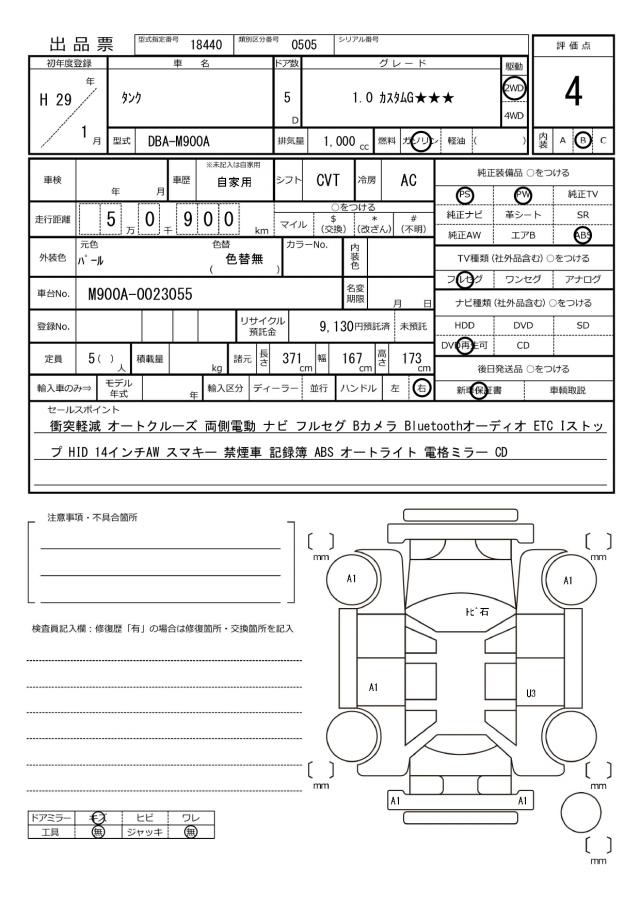 出品票 型式指定番号 18440 類別区分番号 0505 シリアル番号
評価点
初年度登録 車名 ドア数 グレード 駆動
H 29 年 1 月 タンク 5 D 1.0 カスタムG★★★ 2WD 4WD 4
型式 DBA-M900A 排気量 1,000 cc 燃料 ガソリン 軽油 ( ) 内装 A B C
車検 年 月 車歴 ※未記入は自家用 自家用 シフト CVT 冷房 AC
純正装備品 ○をつける
PS PW 純正TV
走行距離 5 万 0 千 9 0 0 km ○をつける マイル $ (交換) * (改ざん) # (不明)
純正ナビ 革シート SR
純正AW エアB ABS
外装色 元色 パール 色替 ( 色替無 ) カラーNo. 内装色
TV種類 (社外品含む) ○をつける
フルセグ ワンセグ アナログ
車台No. M900A-0023055 名変期限 月 日
ナビ種類 (社外品含む) ○をつける
登録No. リサイクル預託金 9,130円預託済 未預託
HDD DVD SD
DVD再生可 CD
定員 5( ) 人 積載量 kg 諸元 長さ 371 cm 幅 167 cm 高さ 173 cm
後日発送品 ○をつける
輸入車のみ⇒ モデル年式 年 輸入区分 ディーラー 並行 ハンドル 左 右
新車保証書 車輌取説
セールスポイント
衝突軽減 オートクルーズ 両側電動 ナビ フルセグ Bカメラ Bluetoothオーディオ ETC Iストッ
プ HID 14インチAW スマキー 禁煙車 記録簿 ABS オートライト 電格ミラー CD
注意事項・不具合箇所
[ ] mm [ ] mm
A1 A1
トビ石
検査員記入欄：修復歴「有」の場合は修復箇所・交換箇所を記入
A1 U3
[ ] mm [ ] mm
A1 A1
ドアミラー キズ ヒビ ワレ
工具 無 ジャッキ 無
[ ] mm